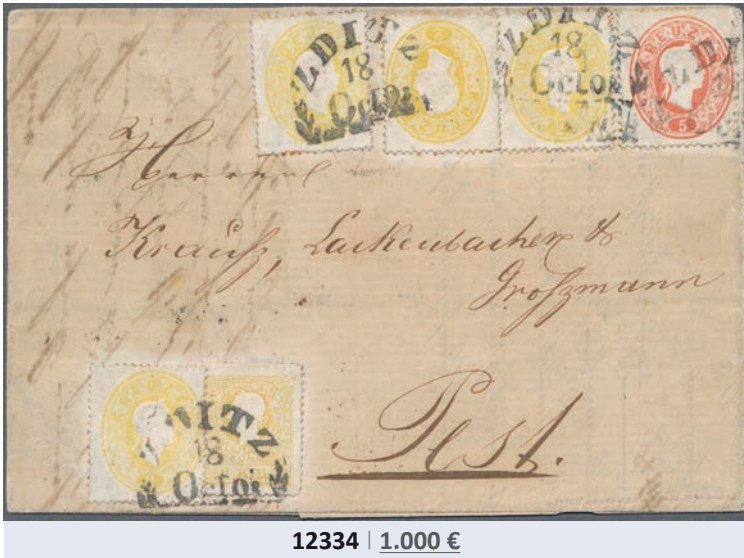 LDITZ
18
Octo
LDITZ
18
Octob
KREUZER
5
Herren
Krausz, Lackenbacher &
Groszmann
DITZ
18
Octob
Pest.
12334 | 1.000 €